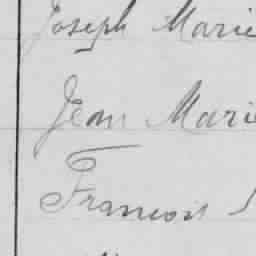 Joseph Marie
Jean Marie
Francois